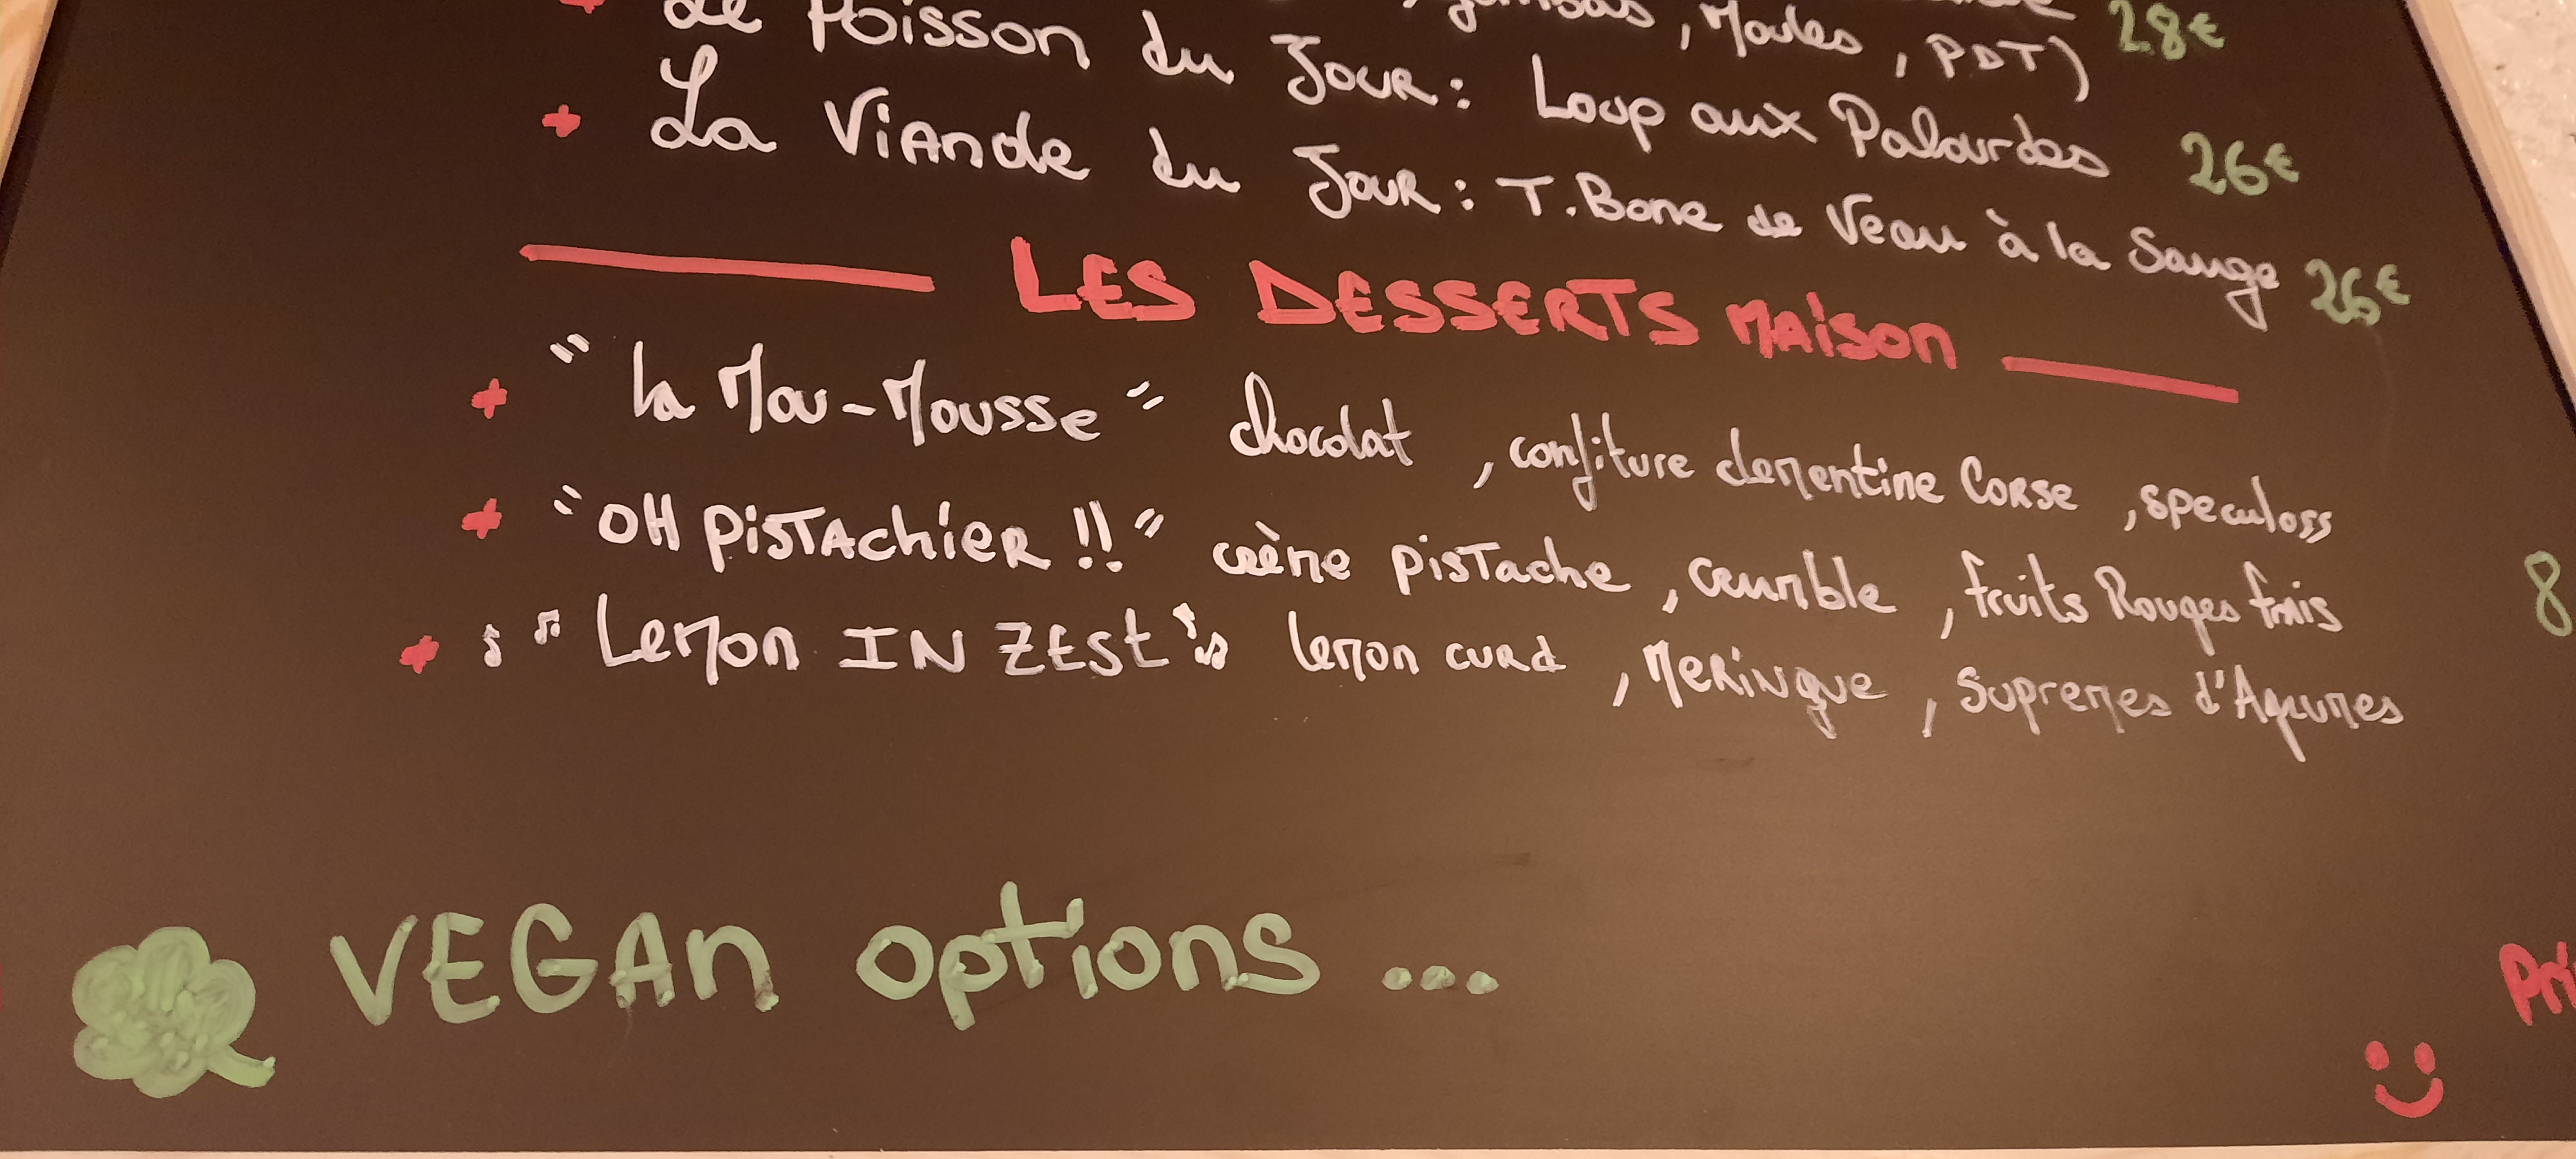 , Moules , PDT) 28€
Le Poisson du Jour : Loup aux Palourdes 26€
+ La Viande du Jour : T.Bone de Veau à la Sauge 26€
LES DESSERTS MAISON
+ "La Mou-Mousse" chocolat , confiture clementine Corse , speculoss
+ "OH PISTAchiER !!" crème pistache , crumble , fruits Rouges frais 8
+ ♪ ♫ " Lemon IN ZEST " ♫ lemon curd , Meringue , Supremes d'Agrumes
VEGAN options ...
Pri